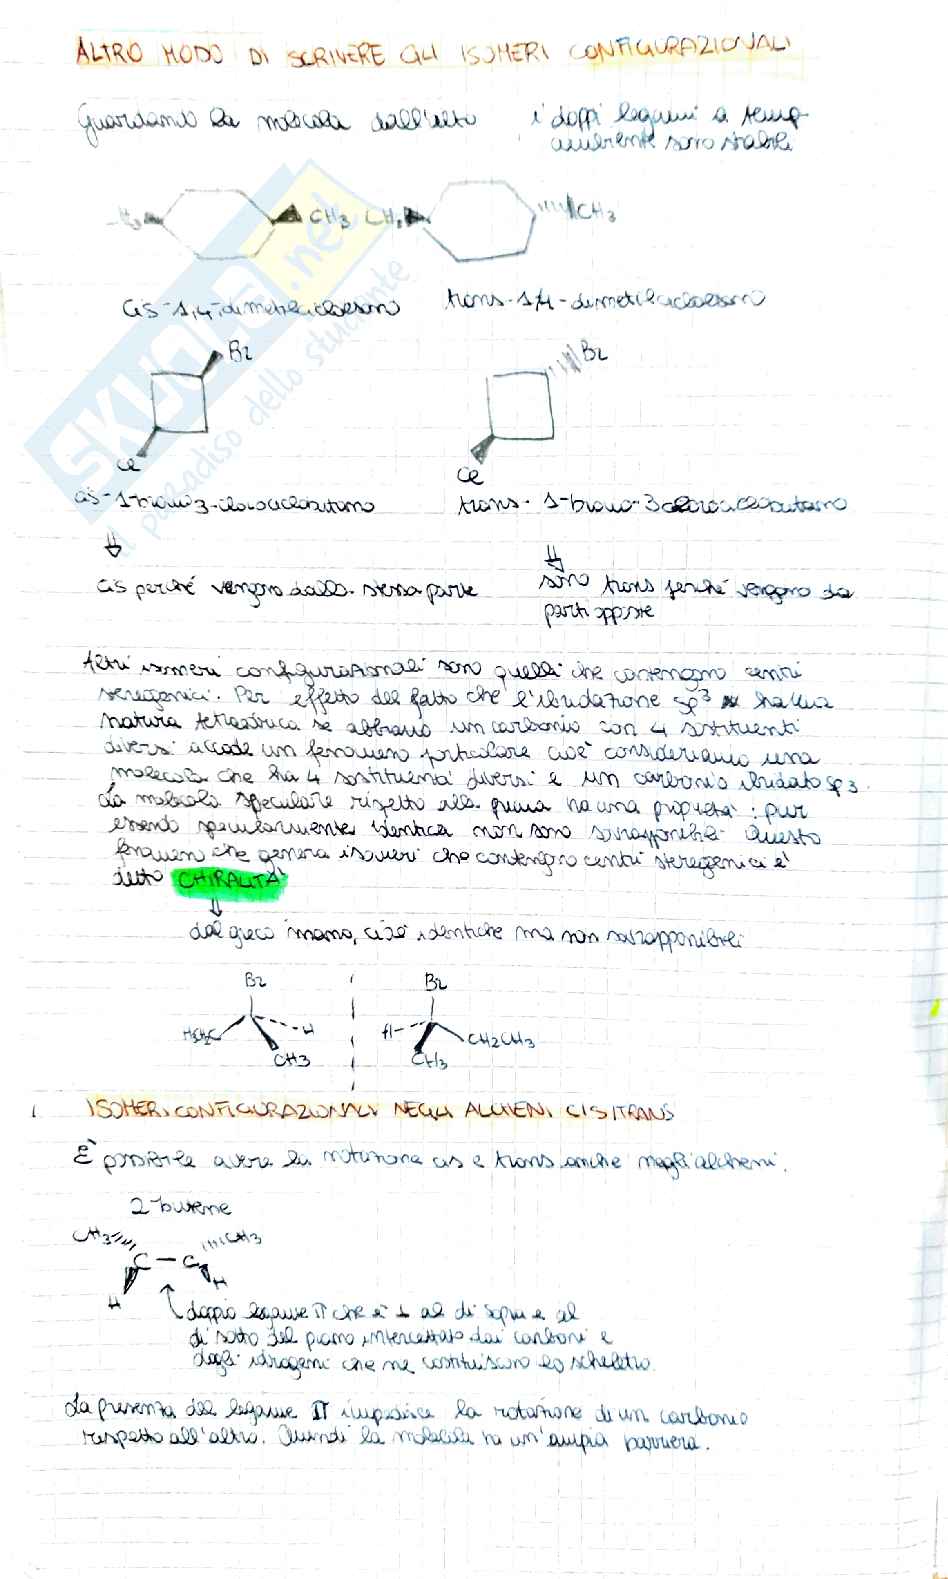 ALTRO MODO DI SCRIVERE GLI ISOMERI CONFIGURAZIONALI
Guardando la molecola dall'alto
i doppi legami a temp
ambiente sono stabili
H3 CH3 CH3 CH3
cis-1,4-dimetilcicloesano
trans-1,4-dimetilcicloesano
Br
Br
Cl
Cl
cis-1-bromo 3-clorociclobutano
trans-1-bromo-3clorociclobutano
cis perché vengono dalla stessa parte
sono trans perché vengono da
parti opposte
Altri isomeri configurazionali sono quelli che contengono centri
stereogenici. Per effetto del fatto che l'ibridazione sp3 ha una
natura tetraedrica se abbiamo un carbonio con 4 sostituenti
diversi accade un fenomeno particolare cioè consideriamo una
molecola che ha 4 sostituenti diversi e un carbonio ibridato sp3.
La molecola speculare rispetto alla prima ha una proprietà: pur
essendo specularmente identica non sono sovrapponibili. Questo
fenomeno che genera isomeri che contengono centri stereogenici è
detto CHIRALITÀ
dal greco mano, cioè identiche ma non sovrapponibili
Br
Br
H3CH2C H
CH3
H CH2CH3
CH3
ISOMERI CONFIGURAZIONALI NEGLI ALCHENI CIS/TRANS
È possibile avere la notazione cis e trans anche negli alcheni.
2-butene
CH3 CH3
C - C
H H
doppio legame π che è ⊥ al di sopra e al
di sotto del piano intercettato dai carboni e
dagli idrogeni che ne costituiscono lo scheletro.
La presenza del legame π impedisce la rotazione di un carbonio
rispetto all'altro. Quindi la molecola ha un'ampia barriera.
SKUOLA.net
il paradiso dello studente